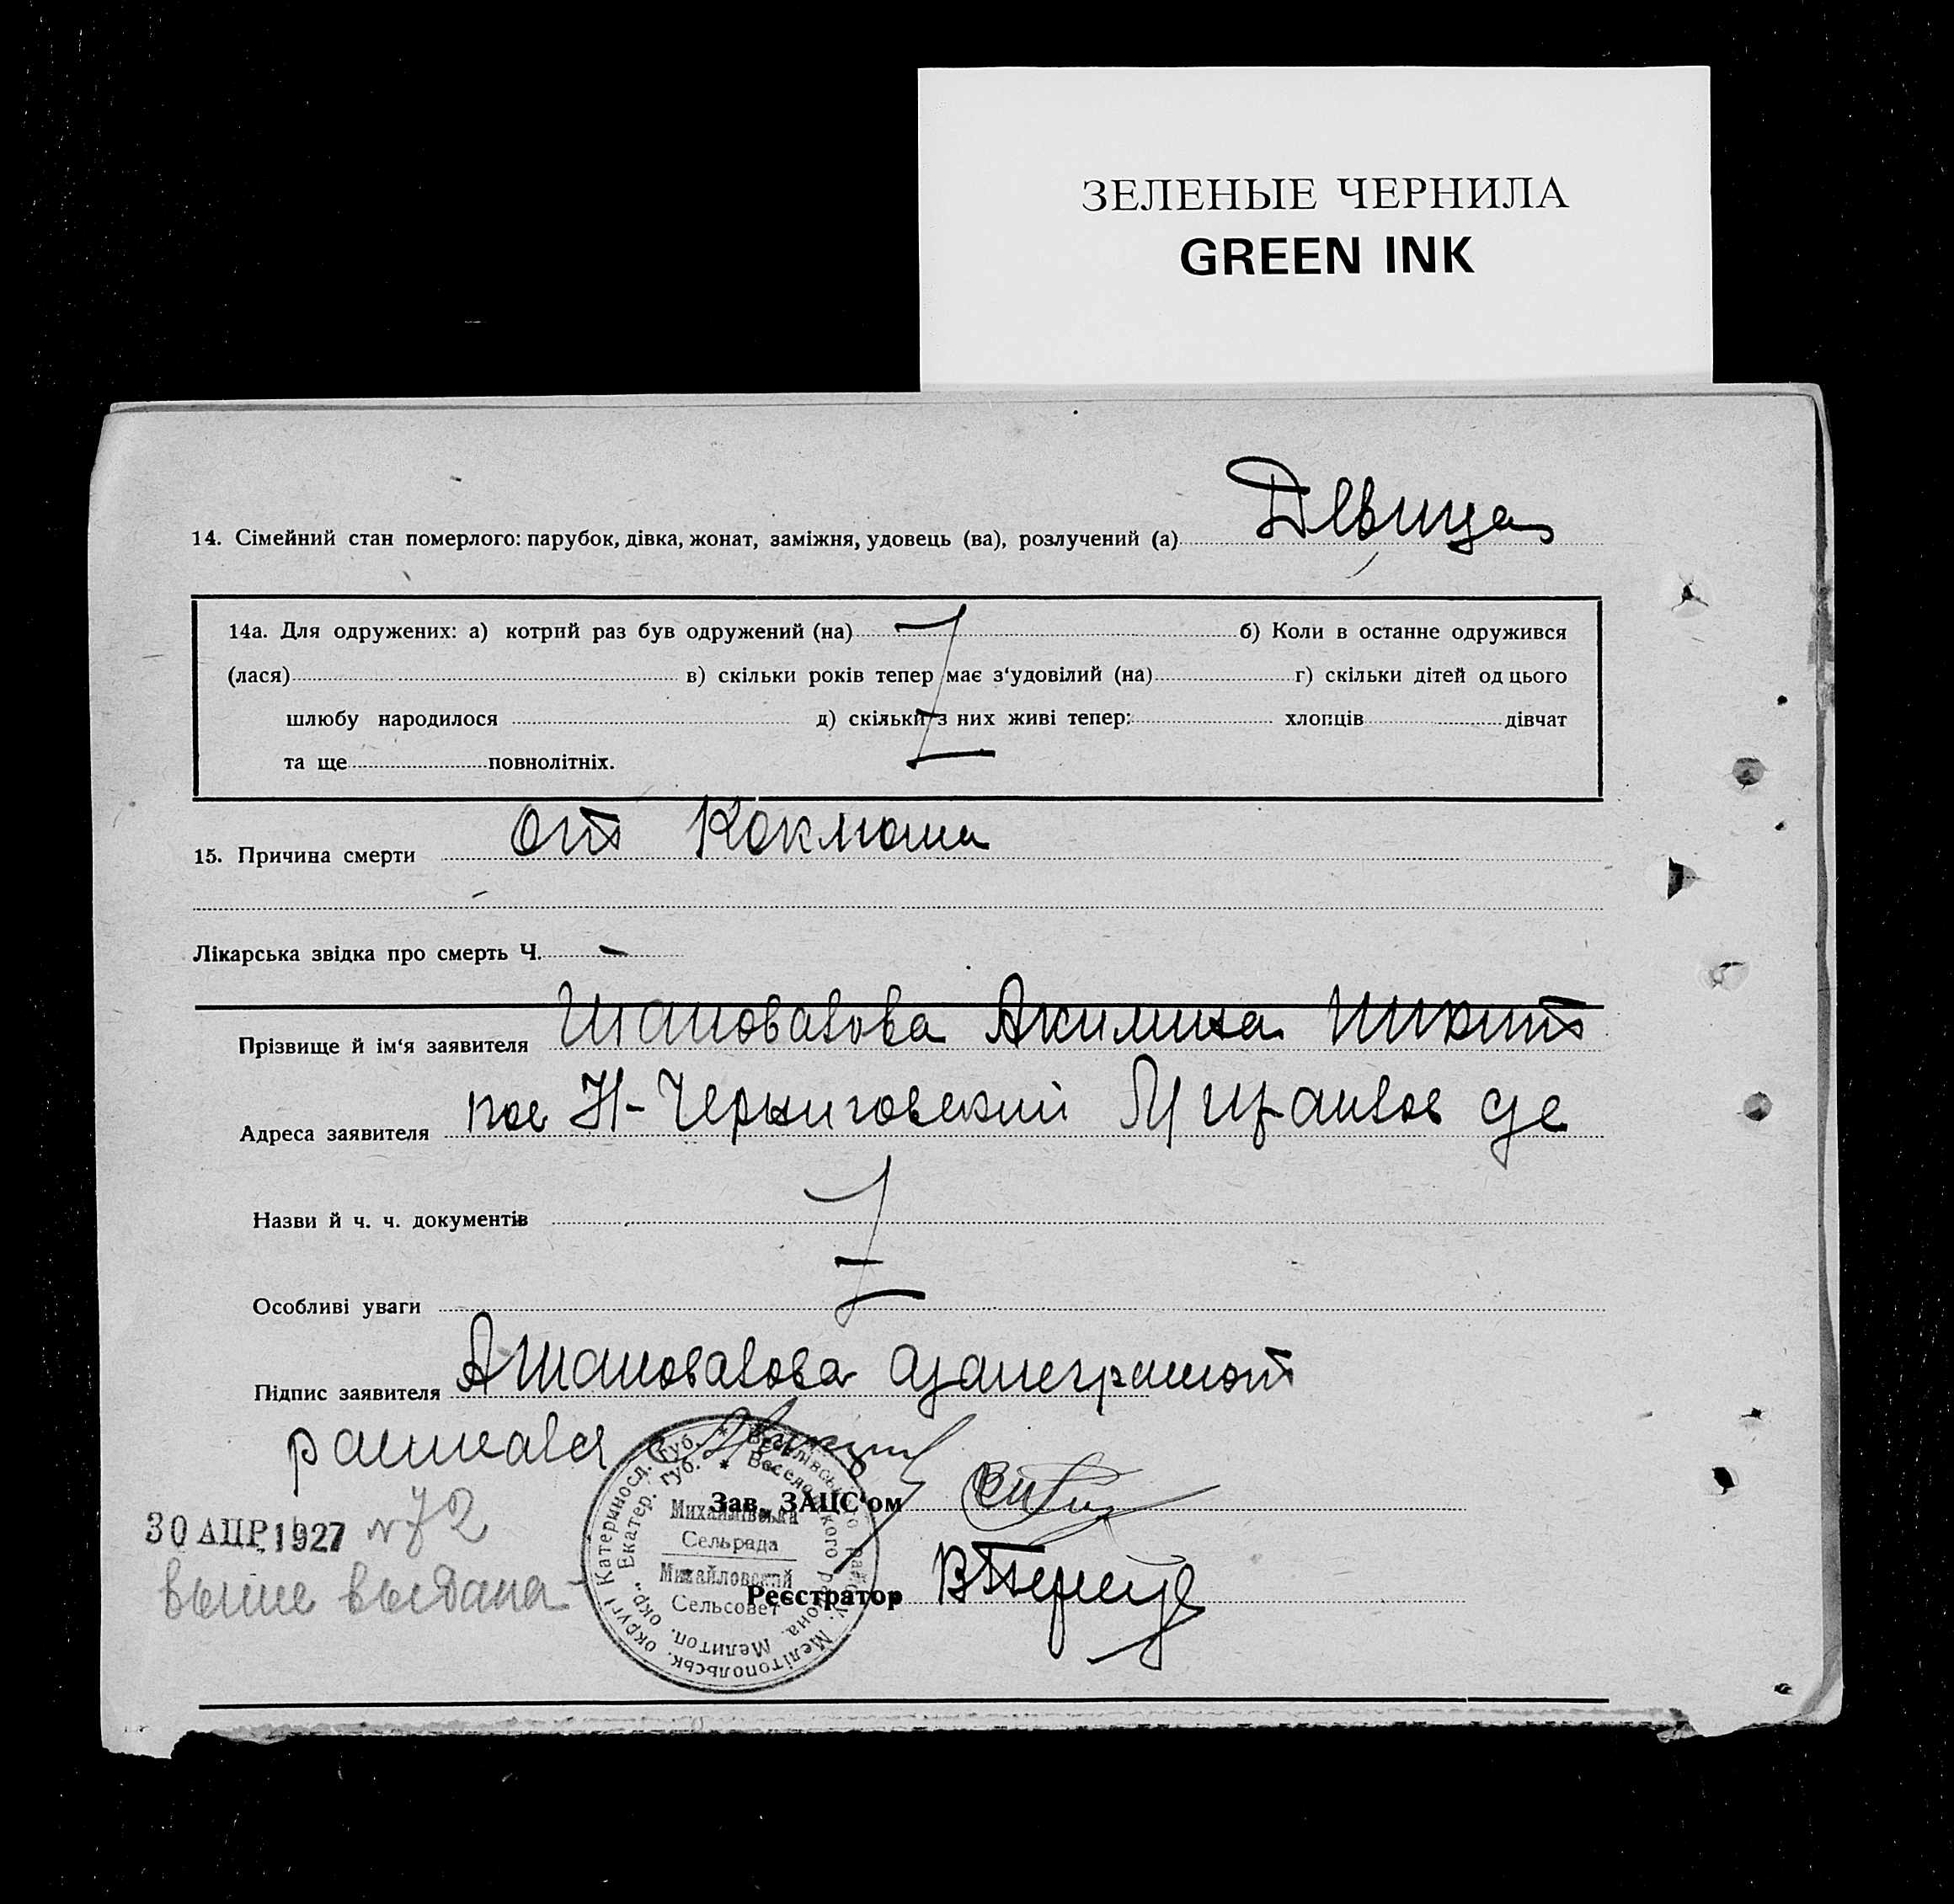 ЗЕЛЕНЫЕ ЧЕРНИЛА
GREEN INK
14. Сімейний стан померлого: парубок, дівка, жонат, заміжня, удовець (ва), розлучений (а) Девица
14а. Для одружених: а) котрий раз був одружений (на) б) Коли в останне одружився
(лася) в) скільки років тепер має з'удовілий (на) г) скільки дітей од цього
шлюбу народилося д) скільки з них живі тепер: хлопців дівчат
та ще повнолітніх.
15. Причина смерти от Коклюша
Лікарська звідка про смерть Ч. –
Прізвище й ім'я заявителя Шаповалова Акилина Никит
Адреса заявителя пос Н-Черниговский
Назви й ч. ч. документів
Особливі уваги
Підпис заявителя А Шаповалова азанеграмот
расписался
Зав. ЗАЦС'ом
30 АПР. 1927 № 72
выше выдана
Реєстратор
Катериносл. губ. * Веселівського району. Мелітопольськ. округі
Екатер. губ. * Веселовского района. Мелитоп. окр.
Михайлівська
Сельрада
Михайловский
Сельсовет